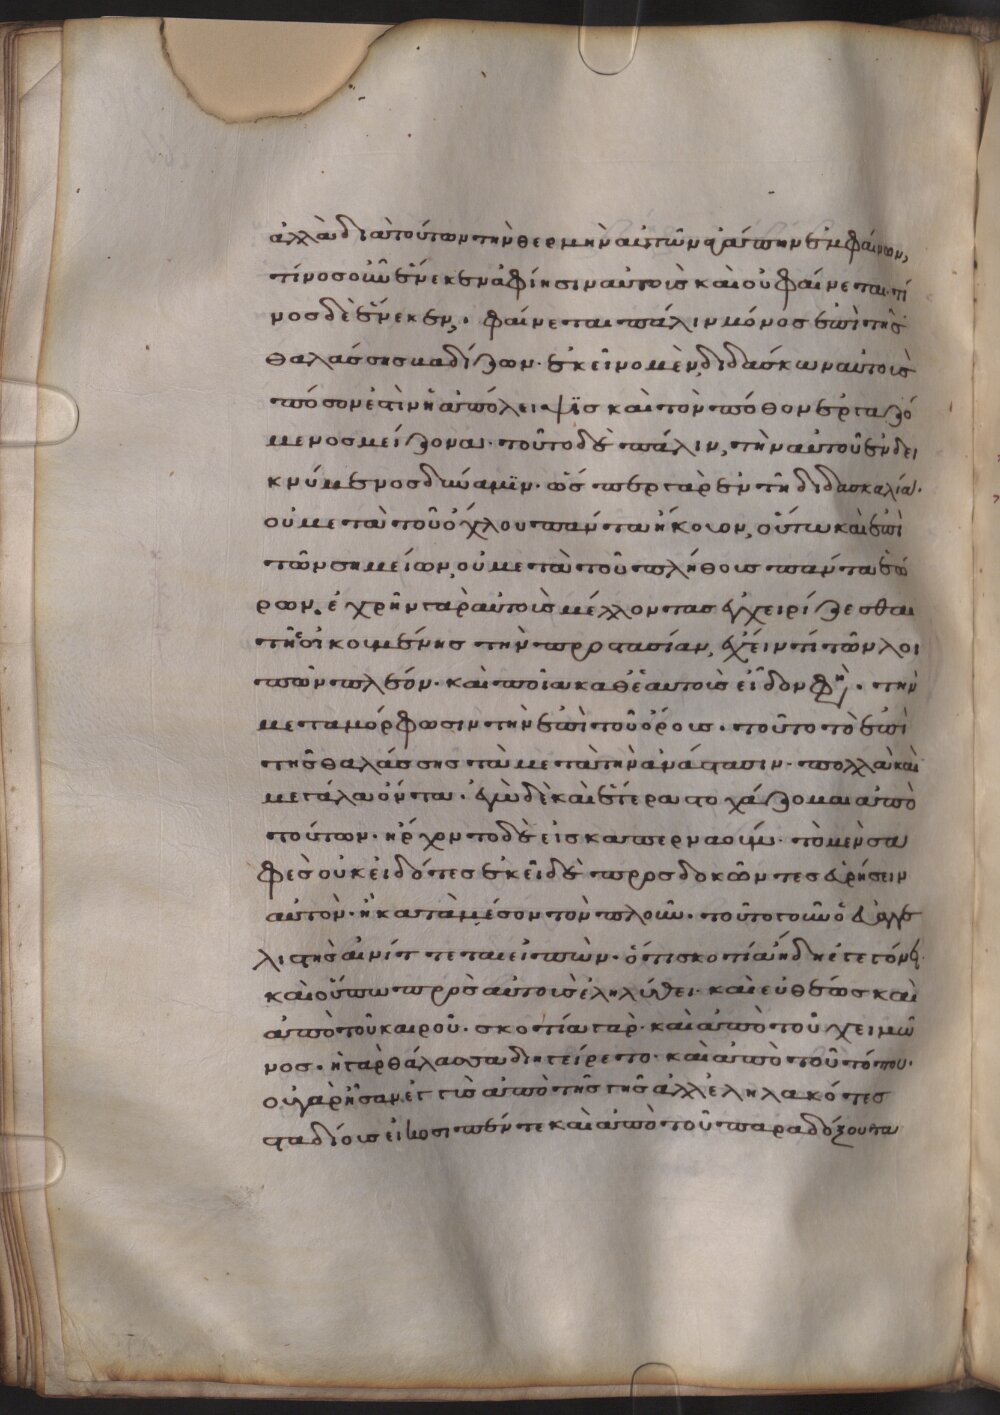 ἀλλὰ διὰ τούτων τὴν θερμὴν αὐτῶν ἀγάπην ἐμφαίνων,
τίνος οὖν ἕνεκεν ἀφίησιν αὐτοὺς καὶ οὐ φαίνεται· τί
νος δὲ ἕνεκεν, φαίνεται πάλιν μόνος ἐπὶ τῆς
θαλάσσης βαδίζων· ἐκεῖνο μὲν, διδάσκων αὐτοὺς
πόσον ἐστὶν ἡ ἀπόλειψϊς καὶ τὸν πόθον ἐργαζό
μενος μείζονα· τοῦτο δὲ πάλιν, τὴν αὐτοῦ ἐνδει
κνύμενος δύναμϊν· ὥσπερ γὰρ ἐν τῆ διδασκαλία·
οὐ μετὰ τοῦ ὄχλου πάντα ἤκουον, οὕτω καὶ ἐπὶ
τῶν σημείων, οὐ μετὰ τοῦ πλήθους πάντα ἑώ
ρων. ἐχρῆν γὰρ αὐτοὺς μέλλοντας ἐγχειρίζεσθαι
τῆς οἰκουμένης τὴν προστασίαν, ἔχειν τί τῶν λοι
πῶν πλέον· καὶ ποῖα καθ' ἑαυτοὺς εἶδον φη· τὴν
μεταμόρφωσιν τὴν ἐπὶ τοῦ ὄρους· τοῦτο τὸ ἐπὶ
τῆς θαλάσσης τὰ μετὰ τὴν ἀνάστασιν· πολλὰ καὶ
μεγάλα ὄντα· ἐγὼ δὲ καὶ ἕτερα στοχάζομαι ἀπὸ
τούτων· ἤρχοντο δὲ εἰς καπερναούμ· τὸ μὲν σα
φὲς οὐκ εἰδότες ἐκεῖ δὲ προσδοκῶντες εὑρήσειν
αὐτὸν· ἢ κατὰ μέσον τὸν πλοῦν· τοῦτο γοῦν ὁ εὐαγγε
λιστὴς αἰνίττεται εἰπὼν· ὅτι σκοτία ἤδη ἐγεγόνει·
καὶ οὔπω πρὸς αὐτοὺς ἐληλύθει· καὶ εὐθέως καὶ
ἀπὸ τοῦ καιροῦ· σκοτία γὰρ· καὶ ἀπὸ τοῦ χειμῶ
νος· ἡ γὰρ θάλασσα διηγείρετο· καὶ ἀπὸ τοῦ τόπου·
οὐ γὰρ ἦσαν ἐγγὺς ἀπὸ τῆς γῆς ἀλλ' ἐληλακότες
σταδίους εἴκοσι πέντε καὶ ἀπὸ τοῦ παραδόξου τα